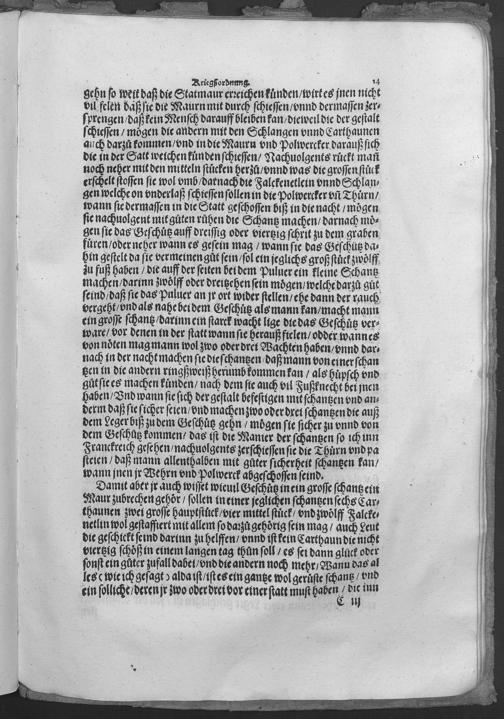 Kriegßordnung. 14
gehn so weit daß die Statmaur erreichen künden/wirt es jnen nicht
vil felen daß sie die Maurn mit durch schiessen/vnnd dermassen zer-
sprengen/daß kein Mensch darauff bleiben kan/dieweil die der gestalt
schiessen/mögen die andern mit den Schlangen vnnd Carthaunen
auch darzů kommen/vnd in die Maurn vñ Polwercker darauß sich
die in der Satt weichen künden schiessen/Nachuolgents rückt mañ
noch neher mit den mitteln stücken herzů/vnnd was die grossen stück
erschelt stossen sie wol vmb/darnach die Falckenetlein vnnd Schlan-
gen welche on vnderlaß schiessen sollen in die Polwercker vñ Thürn/
wann sie dermassen in die Statt geschossen biß in die nacht/mögen
sie nachuolgent mit gůten růhen die Schantz machen/darnach mö-
gen sie das Geschütz auff dreissig oder viertzig schrit zu dem graben
füren/oder neher wann es gesein mag/wann sie das Geschütz da-
hin gestelt da sie vermeinen gůt sein/sol ein jeglichs groß stück zwölff
zu fůß haben/die auff der seiten bei dem Puluer ein kleine Schantz
machen/darinn zwölff oder dreitzehen sein mögen/welche darzů gůt
seind/daß sie das Puluer an jr ort wider stellen/ehe dann der rauch
vergeht/vnd als nahe bei dem Geschütz als mann kan/macht mann
ein grosse schantz/darinn ein starck wacht lige die das Geschütz ver-
ware/vor denen in der statt wann sie herauß fielen/odder wann es
von nöten mag mann wol zwo oder drei Wachten haben/vnnd dar-
nach in der nacht machen sie die schantzen/daß mann von einer schan
tzen in die andern ringßweiß herumb kommen kan/als hüpsch vnd
gůt sie es machen künden/nach dem sie auch vil Fůßknecht bei jnen
haben/Vnd wann sie sich der gestalt befestigen mit schantzen vnd an-
dern daß sie sicher seien/vnd machen zwo oder drei schantzen die auß
dem Leger biß zu dem Geschütz gehn/mögen sie sicher zu vnnd von
dem Geschütz kommen/das ist die Manier der schantzen so ich inn
Franckreich gesehen/nachuolgents zerschiessen sie die Thürn vnd pa
steien/daß mann allenthalben mit gůter sicherheit schantzen kan/
wann jnen jr Wehrn vnd Polwerck abgeschossen seind.
Damit aber jr auch wisset wieuil Geschütz in ein grosse schantz ein
Maur zubrechen gehör/sollen in einer jeglichen schantzen sechs Car-
thaunen zwei grosse hauptstück/vier mittel stück/vnd zwölff Falcke-
netlin wol gestaffiert mit allem so darzů gehörig sein mag/auch Leut
die geschickt seind darinn zu helffen/vnnd ist kein Carthaun die nicht
viertzig schöß in einem langen tag thůn soll/es sei dann glück oder
sonst ein gůter zufall dabei/vnd die andern noch mehr/Wann das al
les wie ich gesagt/alda ist/ist es ein gantze wol gerüste schantz/vnd
ein solliche/deren jr zwo oder drei vor einer statt must haben/die inn
C iij